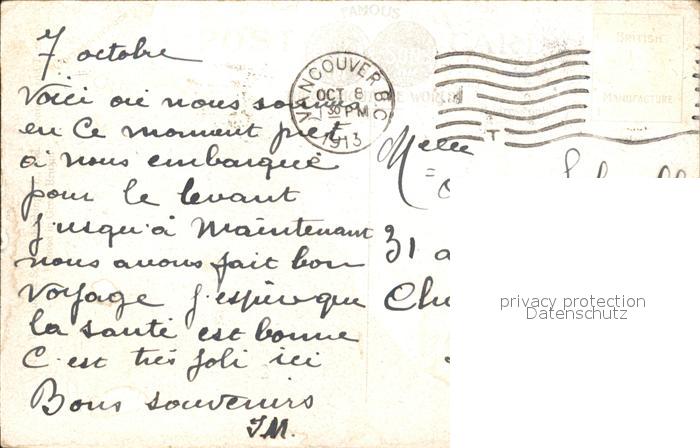 FAMOUS
POST CARD
BRITISH
MANUFACTURE
VANCOUVER B.C.
OCT 8
1 30 PM
1913
7 octobre
Voici où nous sommes
en ce moment pret
a nous embarqué
pour le levant
jusqu'à maintenant
nous avons fait bon
voyage j'espère que
la santé est bonne
C'est trés joli ici
Bons souvenirs
J.M.
Melle
31
privacy protection
Datenschutz